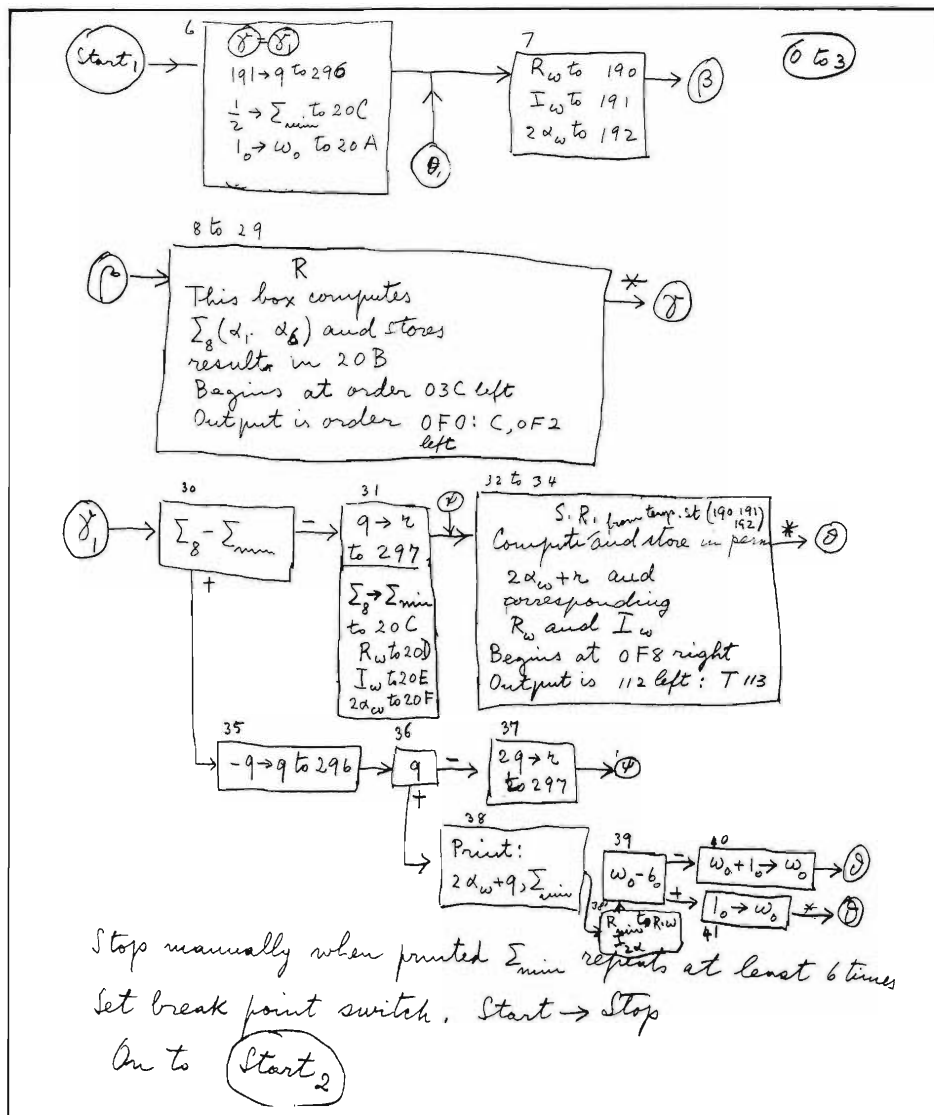 Start₁
6
γ = γ₁
191 → q to 296
½ → Σmin to 20C
1₀ → ω₀ to 20A
θ₁
7
Rω to 190
Iω to 191
2αω to 192
β
0 to 3
8 to 29
β
R
This box computes
Σ₈(α₁, α₆) and stores
result in 20B
Begins at order 03C left
Output is order 0F0: C, 0F2
left
γ
30
γ₁
Σ₈ - Σmin
-
+
31
q → r
to 297
Σ₈ → Σmin
to 20C
Rω to 20D
Iω to 20E
2αω to 20F
ψ
32 to 34
S.R. from temp. st (190 191
192)
Compute and store in perm
2αω + r and
corresponding
Rω and Iω
Begins at 0F8 right
Output is 112 left: T 113
*
θ
35
-q → q to 296
36
q
-
+
37
2q → r
to 297
ψ
38
Print:
2αω + q, Σmin
39
ω₀ - 6₀
-
+
40
ω₀ + 1₀ → ω₀
θ
41
1₀ → ω₀
*
θ
38'
Rmin to Rω
I
2α
Stop manually when printed Σmin repeats at least 6 times
Set break point switch. Start → Stop
On to Start₂